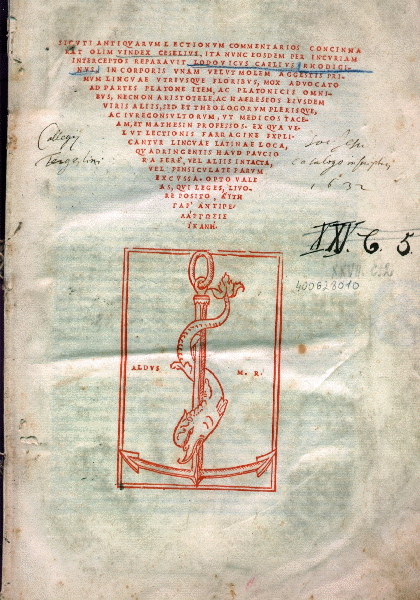 SICVTI ANTIQVARVM LECTIONVM COMMENTARIOS CONCINNA
RAT OLIM VINDEX CESELIVS, ITA NVNC EOSDEM PER INCVRIAM
INTERCEPTOS REPARAVIT LODOVICVS CAELIVS RHODIGI-
NVS, IN CORPORIS VNAM VELVT MOLEM AGGESTIS PRI-
MVM LINGVAE VTRIVSQVE FLORIBVS, MOX ADVOCATO
AD PARTES PLATONE ITEM, AC PLATONICIS OMNI-
BVS, NECNON ARISTOTELE, AC HAERESEOS EIVSDEM
VIRIS ALIIS, SED ET THEOLOGORVM PLERISQVE,
AC IVRECONSVLTORVM, VT MEDICOS TACE-
AM, ET MATHESIN PROFESSOS. EX QVA VE-
LVT LECTIONIS FARRAGINE EXPLI-
CANTVR LINGVAE LATINAE LOCA,
QVADRINGENTIS HAVD PAVCIO
RA FERE, VEL ALIIS INTACTA,
VEL PENSICVLATE PARVM
EXCVSSA. OPTO VALE
AS, QVI LEGES, LIVO-
RE POSITO,
Collegij
Soc. Jesu
catalogo inscriptus
1632
XXV. C. 5.
XXVII. C.2
400623010
ALDVS M. R.